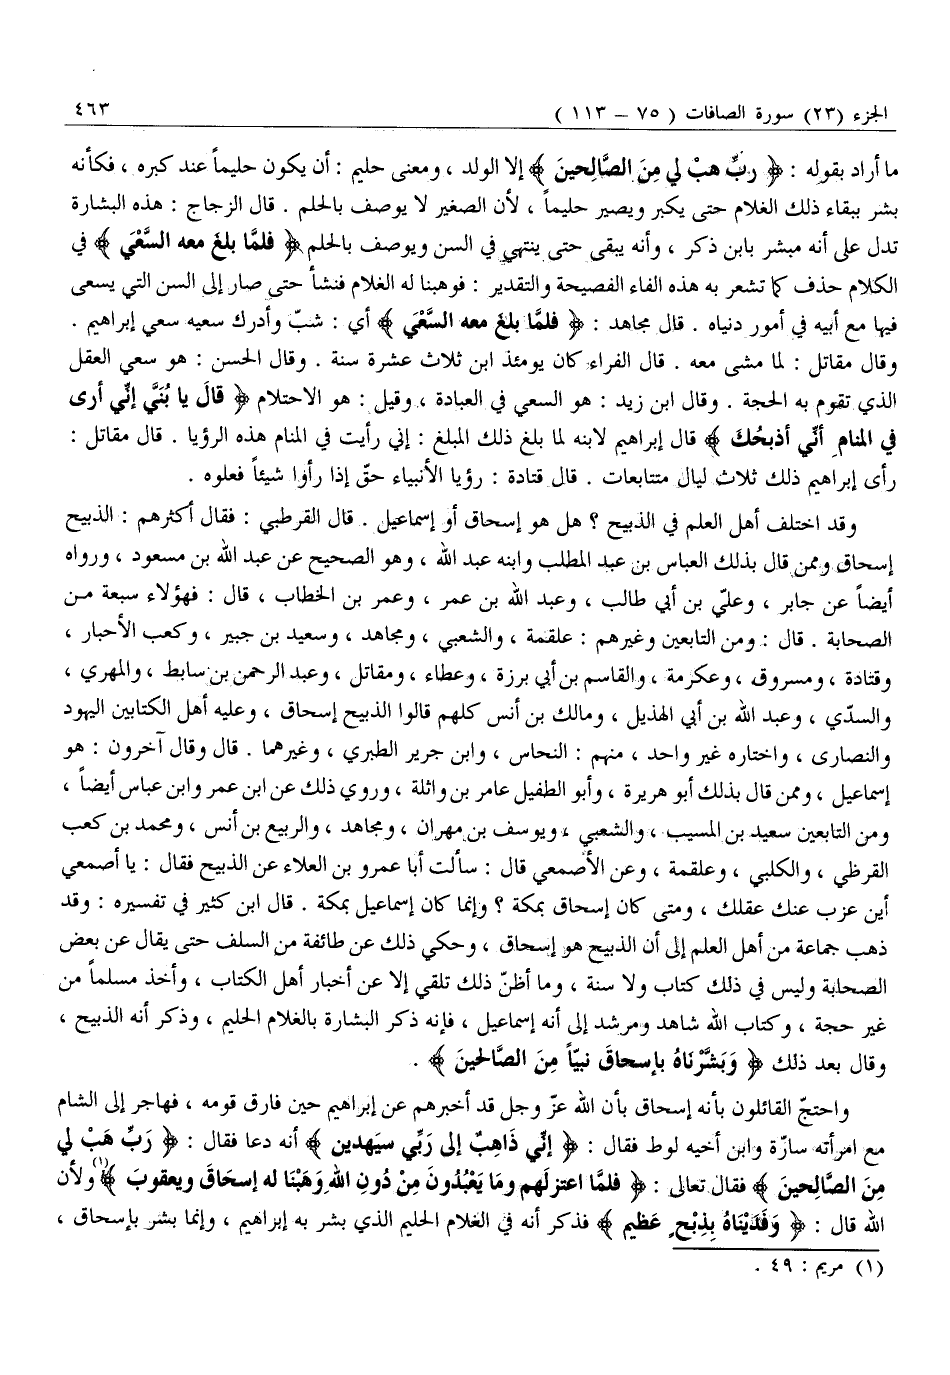 الجزء (٢٣) سورة الصافات ( ٧٥ – ١١٣ )
٤٦٣
ما أراد بقوله : ﴿ رَبِّ هبْ لي مِنَ الصَّالِحينَ ﴾ إلا الولد ، ومعنى حليم : أن يكون حليماً عند كبره ، فكأنه
بشر ببقاء ذلك الغلام حتى يكبر ويصير حليماً ، لأن الصغير لا يوصف بالحلم . قال الزجاج : هذه البشارة
تدل على أنه مبشر بابن ذكر ، وأنه يبقى حتى ينتهي في السن ويوصف بالحلم ﴿ فلمَّا بلغَ معه السَّعْيَ ﴾ في
الكلام حذف كما تشعر به هذه الفاء الفصيحة والتقدير : فوهبنا له الغلام فنشأ حتى صار إلى السن التي يسعى
فيها مع أبيه في أمور دنياه . قال مجاهد : ﴿ فلمَّا بلغ معه السَّعْيَ ﴾ أي : شبّ وأدرك سعيه سعي إبراهيم .
وقال مقاتل : لما مشى معه . قال الفراء كان يومئذ ابن ثلاث عشرة سنة . وقال الحسن : هو سعي العقل
الذي تقوم به الحجة . وقال ابن زيد : هو السعي في العبادة ، وقيل : هو الاحتلام ﴿ قالَ يا بُنَيَّ إنِّي أرى
في المنام أنِّي أذبحُكَ ﴾ قال إبراهيم لابنه لما بلغ ذلك المبلغ : إني رأيت في المنام هذه الرؤيا . قال مقاتل :
رأى إبراهيم ذلك ثلاث ليال متتابعات . قال قتادة : رؤيا الأنبياء حقّ إذا رأوا شيئاً فعلوه .
وقد اختلف أهل العلم في الذبيح ؟ هل هو إسحاق أو إسماعيل . قال القرطبي : فقال أكثرهم : الذبيح
إسحاق وممن قال بذلك العباس بن عبد المطلب وابنه عبد الله ، وهو الصحيح عن عبد الله بن مسعود ، ورواه
أيضاً عن جابر ، وعليّ بن أبي طالب ، وعبد الله بن عمر ، وعمر بن الخطاب ، قال : فهؤلاء سبعة من
الصحابة . قال : ومن التابعين وغيرهم : علقمة ، والشعبي ، ومجاهد ، وسعيد بن جبير ، وكعب الأحبار ،
وقتادة ، ومسروق ، وعكرمة ، والقاسم بن أبي برزة ، وعطاء ، ومقاتل ، وعبد الرحمن بن سابط ، والمهري ،
والسدّي ، وعبد الله بن أبي الهذيل ، ومالك بن أنس كلهم قالوا الذبيح إسحاق ، وعليه أهل الكتابين اليهود
والنصارى ، واختاره غير واحد ، منهم : النحاس ، وابن جرير الطبري ، وغيرهما . قال وقال آخرون : هو
إسماعيل ، وممن قال بذلك أبو هريرة ، وأبو الطفيل عامر بن واثلة ، وروي ذلك عن ابن عمر وابن عباس أيضاً ،
ومن التابعين سعيد بن المسيب ، والشعبي ، ويوسف بن مهران ، ومجاهد ، والربيع بن أنس ، ومحمد بن كعب
القرظي ، والكلبي ، وعلقمة ، وعن الأصمعي قال : سألت أبا عمرو بن العلاء عن الذبيح فقال : يا أصمعي
أين عزب عنك عقلك ، ومتى كان إسحاق بمكة ؟ وإنما كان إسماعيل بمكة . قال ابن كثير في تفسيره : وقد
ذهب جماعة من أهل العلم إلى أن الذبيح هو إسحاق ، وحكي ذلك عن طائفة من السلف حتى يقال عن بعض
الصحابة وليس في ذلك كتاب ولا سنة ، وما أظنّ ذلك تلقي إلا عن أخبار أهل الكتاب ، وأخذ مسلماً من
غير حجة ، وكتاب الله شاهد ومرشد إلى أنه إسماعيل ، فإنه ذكر البشارة بالغلام الحليم ، وذكر أنه الذبيح ،
وقال بعد ذلك ﴿ وَبَشَّرْنَاهُ بإسحاقَ نبيّاً مِنَ الصَّالحينَ ﴾ .
واحتجّ القائلون بأنه إسحاق بأن الله عزّ وجل قد أخبرهم عن إبراهيم حين فارق قومه ، فهاجر إلى الشام
مع امرأته سارّة وابن أخيه لوط فقال : ﴿ إنِّي ذَاهِبٌ إلى رَبِّي سيَهدين ﴾ أنه دعا فقال : ﴿ رَبِّ هَبْ لي
مِنَ الصَّالِحينَ ﴾ فقال تعالى : ﴿ فلمَّا اعتزلَهم ومَا يَعْبُدُونَ مِنْ دُونِ اللهِ وَهَبْنَا له إسحَاقَ ويعقوبَ ﴾(١) ولأن
الله قال : ﴿ وَفَدَيْنَاهُ بِذِبْحٍ عَظيم ﴾ فذكر أنه في الغلام الحليم الذي بشر به إبراهيم ، وإنما بشر بإسحاق ،
(١) مريم : ٤٩ .